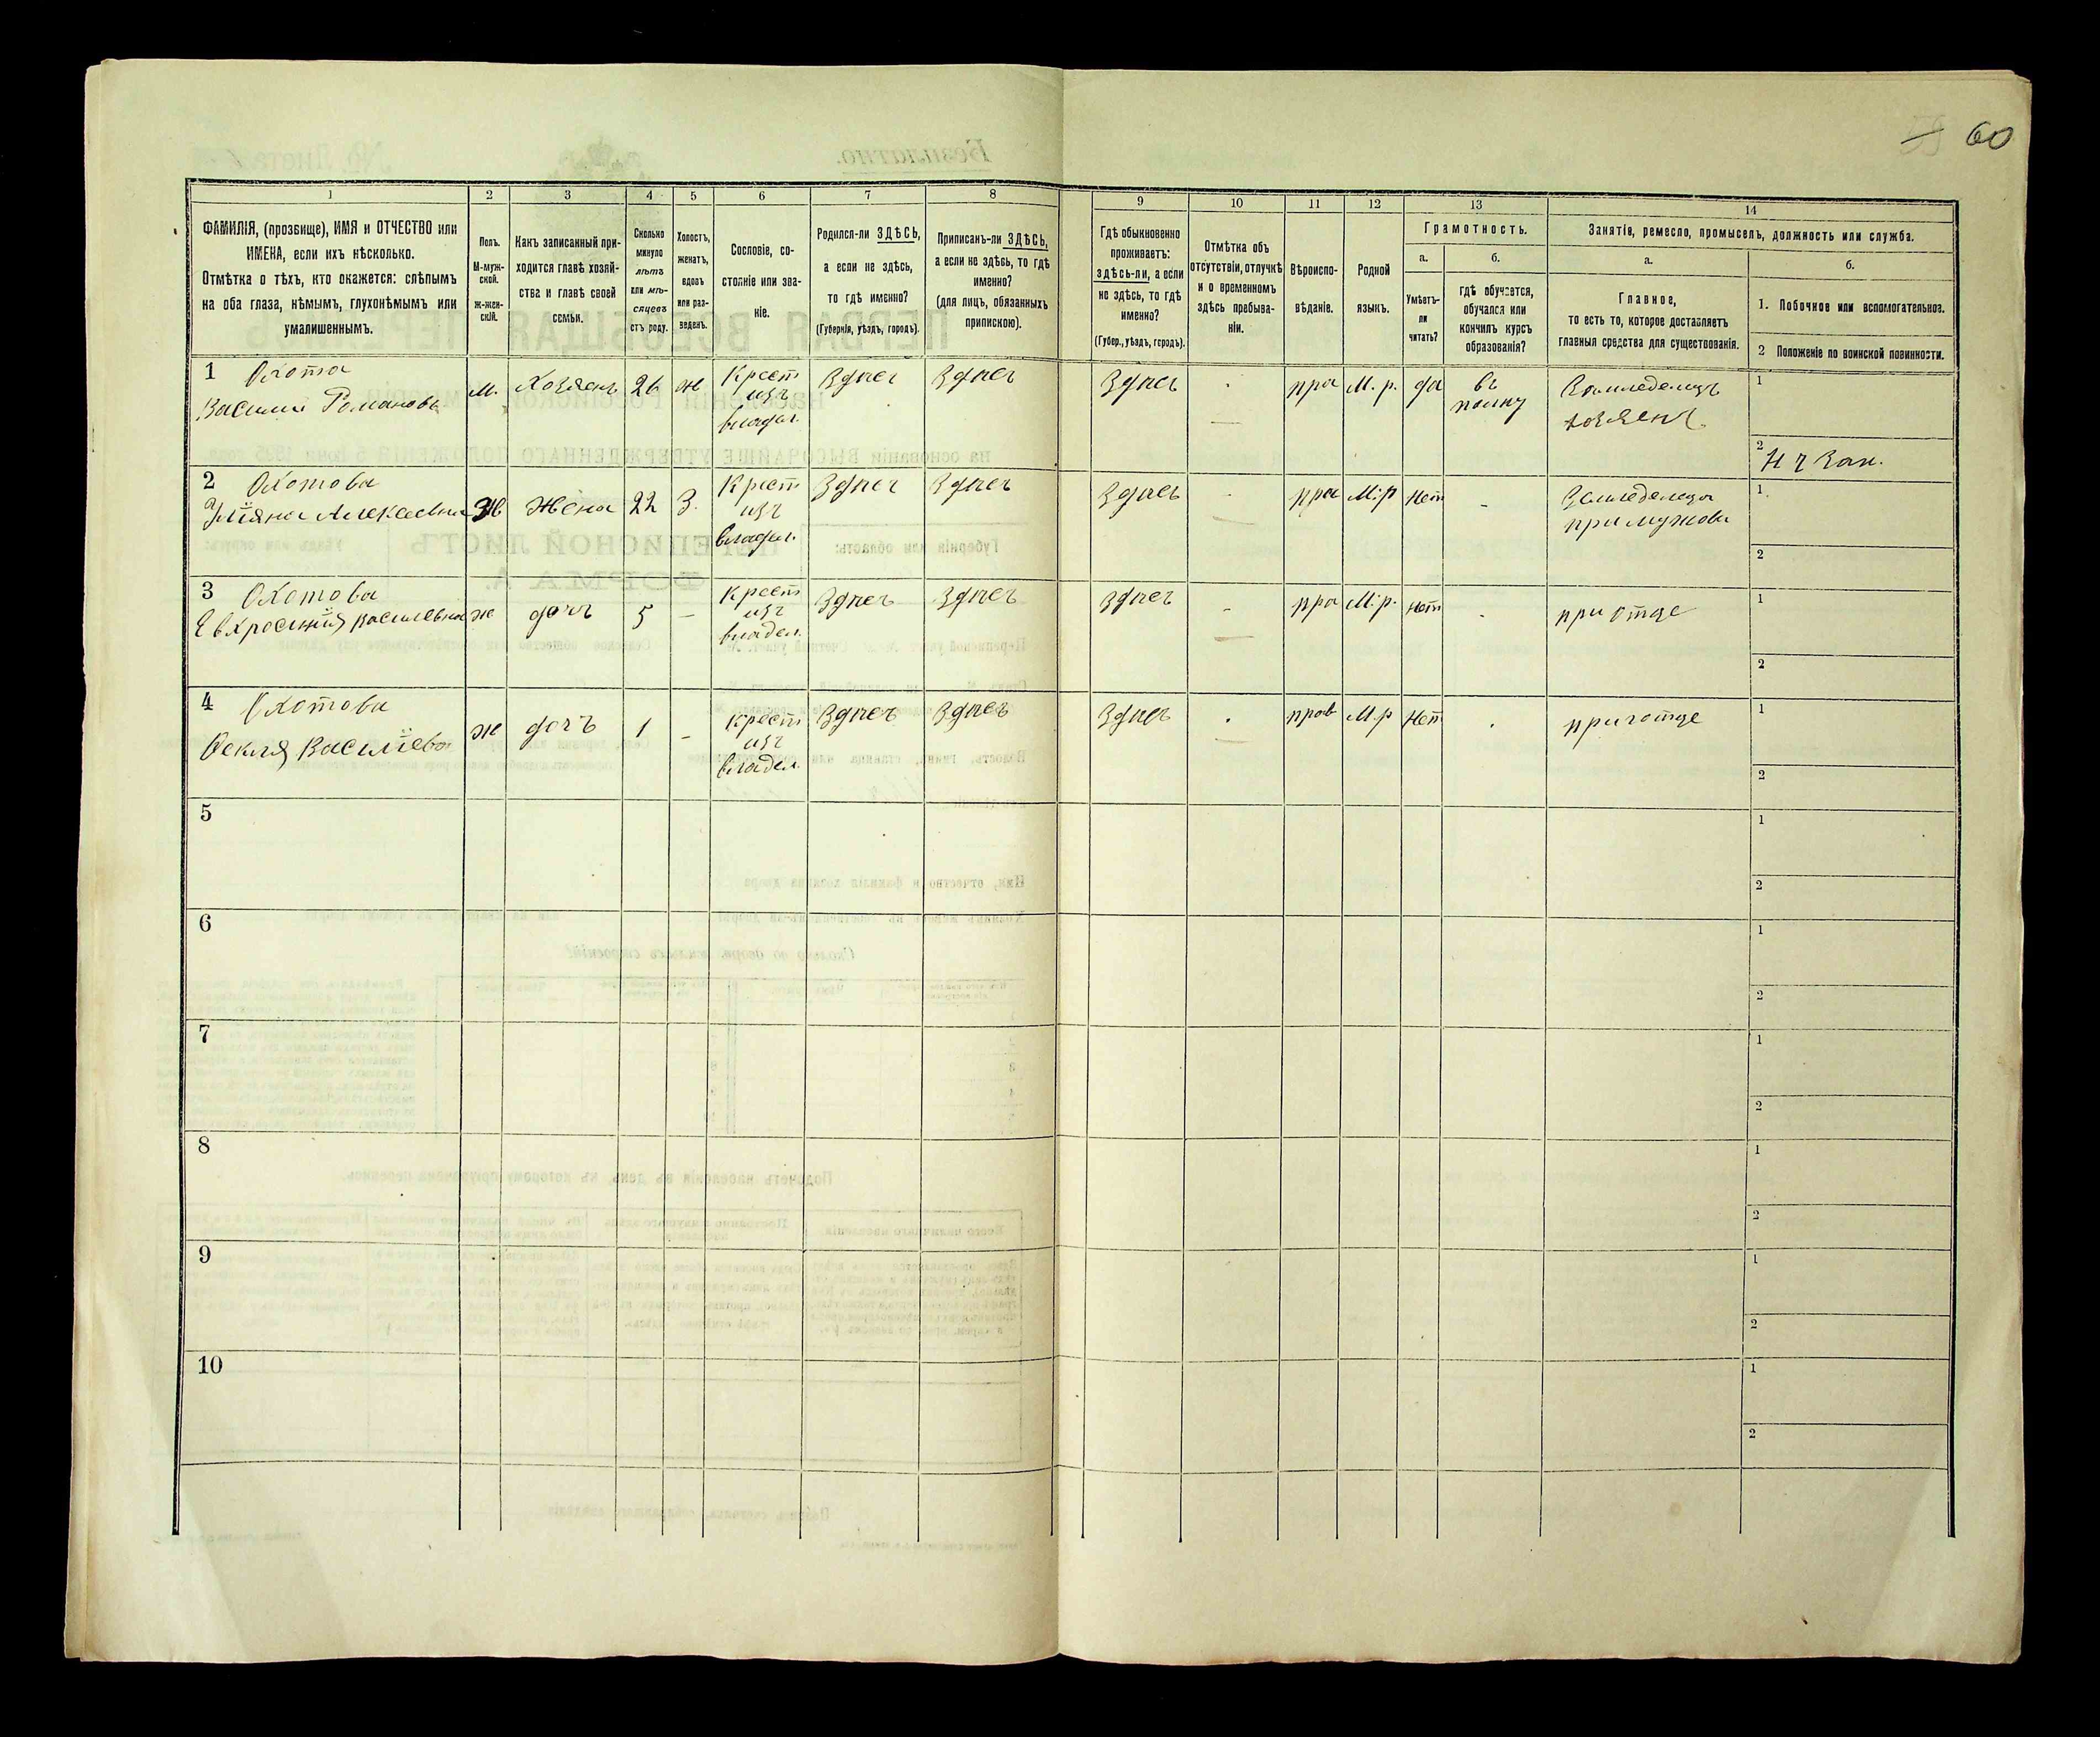 60
1
2
3
4
5
6
7
8
9
10
11
12
13
14
ФАМИЛІЯ, (прозвище), ИМЯ и ОТЧЕСТВО или
ИМЕНА, если ихъ нѣсколько.
Отмѣтка о тѣхъ, кто окажется: слѣпымъ
на оба глаза, нѣмымъ, глухонѣмымъ или
умалишеннымъ.
Полъ.
М-муж-
ской.
ж-жен-
скій.
Какъ записанный при-
ходится главѣ хозяй-
ства и главѣ своей
семьи.
Сколько
минуло
лѣтъ
или мѣ-
сяцевъ
отъ роду.
Холостъ,
женатъ,
вдовъ
или раз-
веденъ.
Сословіе, со-
стояніе или зва-
ніе.
Родился-ли ЗДѢСЬ,
а если не здѣсь,
то гдѣ именно?
(Губернія, уѣздъ, городъ).
Приписанъ-ли ЗДѢСЬ,
а если не здѣсь, то гдѣ
именно?
(для лицъ, обязанныхъ
припискою).
Гдѣ обыкновенно
проживаетъ:
здѣсь-ли, а если
не здѣсь, то гдѣ
именно?
(Губер., уѣздъ, городъ).
Отмѣтка объ
отсутствіи, отлучкѣ
и о временномъ
здѣсь пребыва-
ніи.
Вѣроиспо-
вѣданіе.
Родной
языкъ.
Грамотность.
а.
Умѣетъ-
ли
читать?
б.
гдѣ обучается,
обучался или
кончилъ курсъ
образованія?
Занятіе, ремесло, промыселъ, должность или служба.
а.
Главное,
то есть то, которое доставляетъ
главныя средства для существованія.
б.
1. Побочное или вспомогательное.
2 Положеніе по воинской повинности.
1 Охота
Василий Романовъ
М.
Хозяенъ
26
ж
Крест
изъ
владел.
Здпсъ
Здпсъ
Здпсъ
пра
М. р.
да
въ
полку
Земледелецъ
хозяенъ
1
2
2 Охотова
Жена
22
З.
Крест
изъ
владел.
Здпсъ
Здпсъ
Здпсъ
пра
М.р
Нет
-
1
2
3 Охотова
ж
дочъ
5
-
Крест
изъ
владел.
Здпсъ
Здпсъ
Здпсъ
-
пра
М.р.
нет
при отце
1
2
4 Охотова
ж
дочъ
1
-
Крест
изъ
владел.
Здпсъ
Здпсъ
Здпсъ
прав
М.р
Нет
1
2
5
1
2
6
1
2
7
1
2
8
1
2
9
1
2
10
1
2